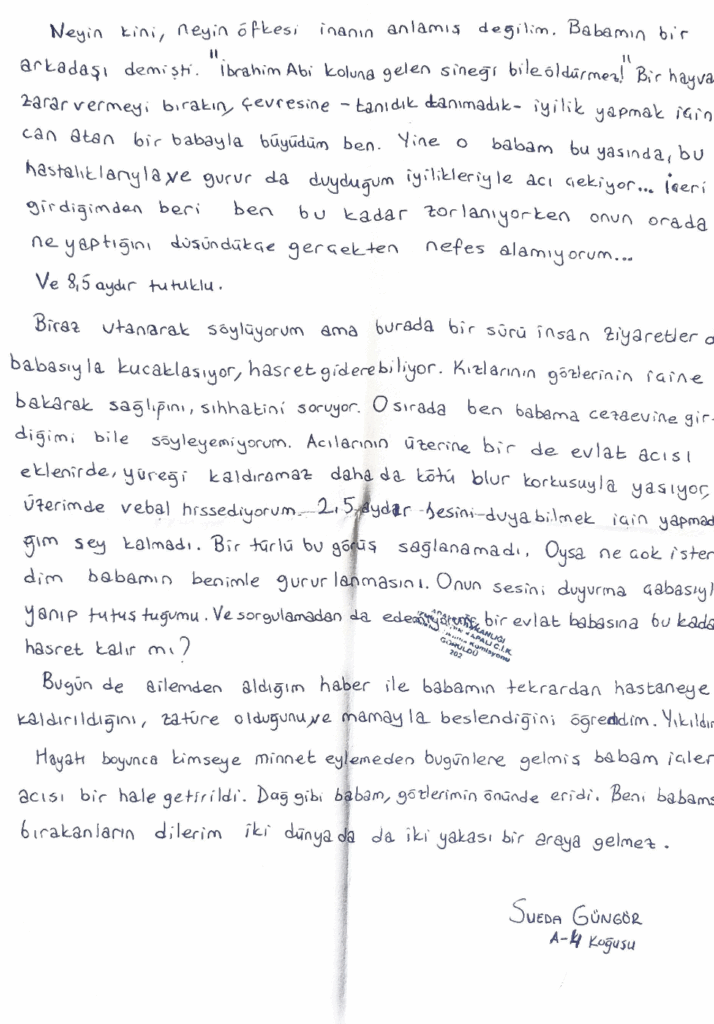 Neyin kini, neyin öfkesi inanın anlamış değilim. Babamın bir
arkadaşı demişti. "İbrahim Abi koluna gelen sineği bile öldürmez!" Bir hayva
zarar vermeyi bırakın, çevresine - tanıdık tanımadık - iyilik yapmak için
can atan bir babayla büyüdüm ben. Yine o babam bu yaşında, bu
hastalıklarıyla ve gurur da duyduğum iyilikleriyle acı çekiyor... İçeri
girdiğimden beri ben bu kadar zorlanıyorken onun orada
ne yaptığını düşündükçe gerçekten nefes alamıyorum...
Ve 8,5 aydır tutuklu.
Biraz utanarak söylüyorum ama burada bir sürü insan ziyaretler
babasıyla kucaklaşıyor, hasret giderebiliyor. Kızlarının gözlerinin içine
bakarak sağlığını, sıhhatini soruyor. O sırada ben babama cezaevine gir-
diğimi bile söyleyemiyorum. Acılarının üzerine bir de evlat acısı
eklenirde, yüreği kaldıramaz daha da kötü olur korkusuyla yaşıyor,
üzerimde vebal hissediyorum. 2,5 aydır sesini duyabilmek için yapmad
ğım şey kalmadı. Bir türlü bu görüş sağlanamadı. Oysa ne çok ister
dim babamın benimle gururlanmasını. Onun sesini duyurma çabasıyl
yanıp tutuştuğumu. Ve sorgulamadan da edemiyorum; bir evlat babasına bu kada
hasret kalır mı?
Bugün de ailemden aldığım haber ile babamın tekrardan hastaneye
kaldırıldığını, zatüre olduğunu ve mamayla beslendiğini öğrendim. Yıkıldır
Hayatı boyunca kimseye minnet eylemeden bugünlere gelmiş babam içler
acısı bir hale getirildi. Dağ gibi babam, gözlerimin önünde eridi. Beni babams
bırakanların dilerim iki dünyada da iki yakası bir araya gelmez.
SUEDA GÜNGÖR
A-4 Koğuşu
GÖRÜLDÜ